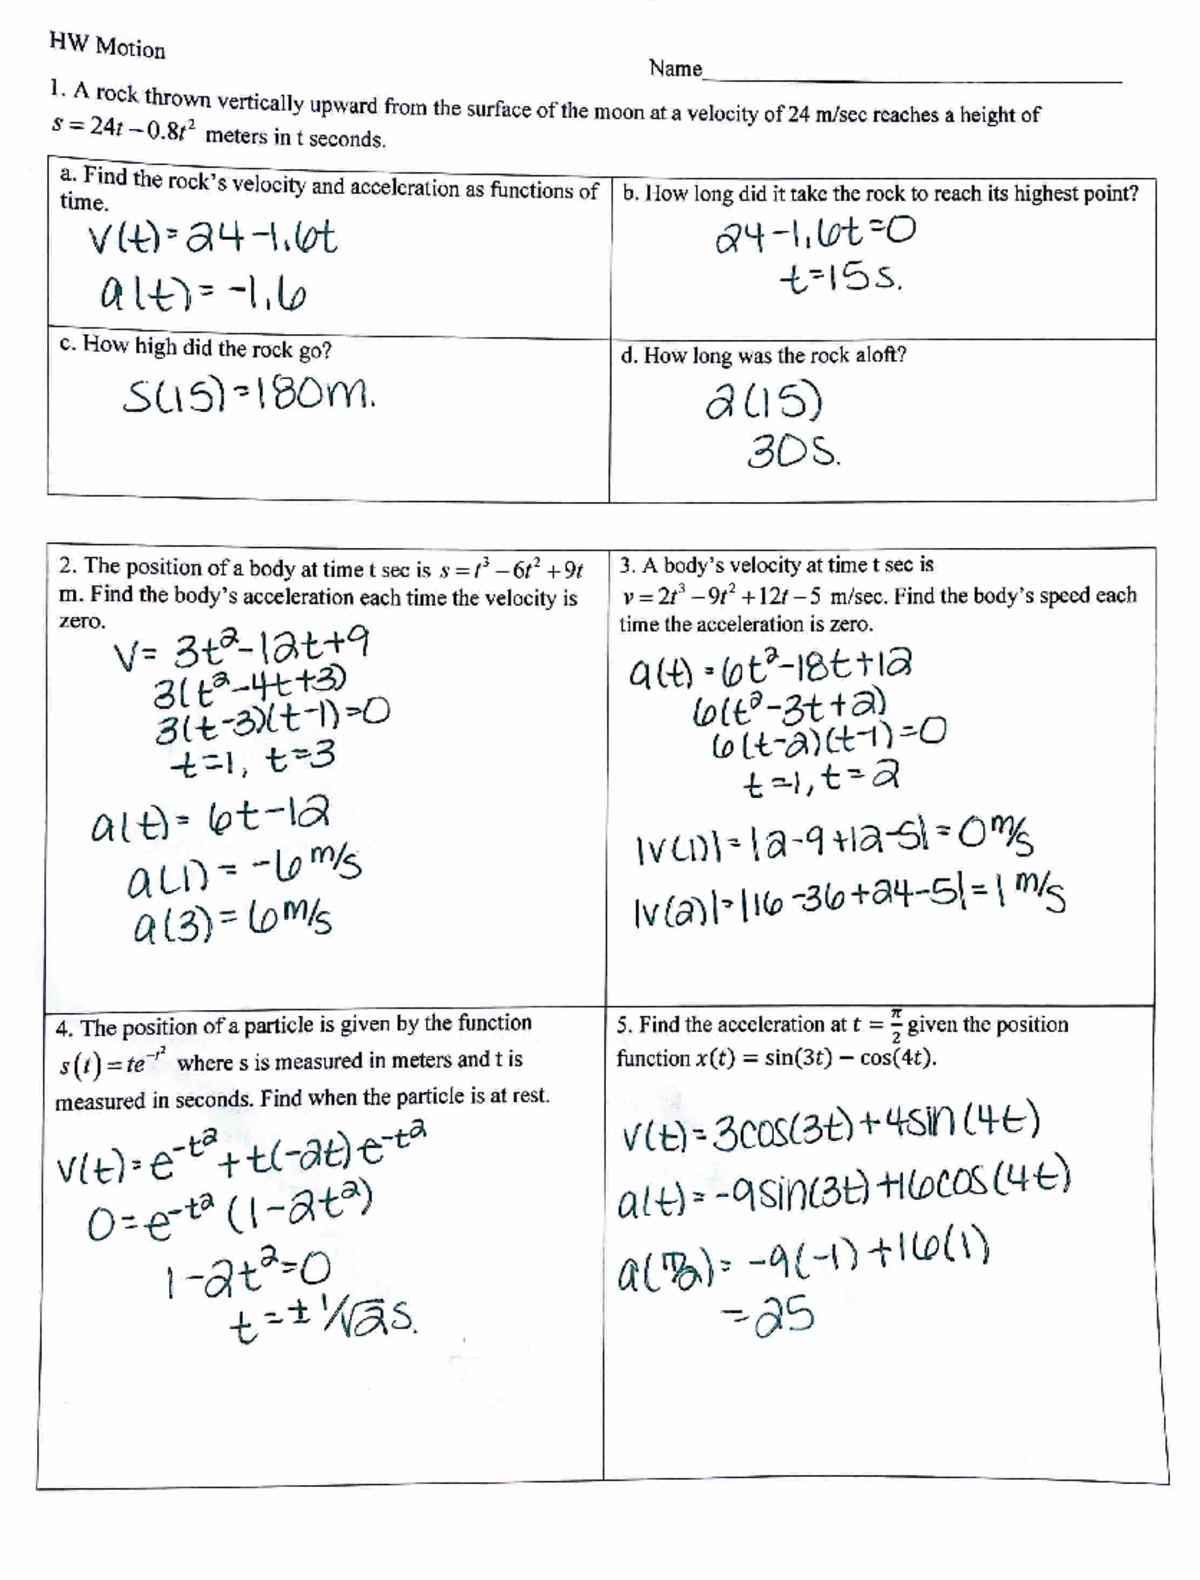 HW Motion
Name
1. A rock thrown vertically upward from the surface of the moon at a velocity of 24 m/sec reaches a height of
s = 24t − 0.8t² meters in t seconds.
a. Find the rock's velocity and acceleration as functions of
time.
v(t) = 24 - 1.6t
a(t) = -1.6
b. How long did it take the rock to reach its highest point?
24 - 1.6t = 0
t = 15 s.
c. How high did the rock go?
S(15) = 180m.
d. How long was the rock aloft?
2(15)
30s.
2. The position of a body at time t sec is s = t³ − 6t² + 9t
m. Find the body's acceleration each time the velocity is
zero.
V = 3t² - 12t + 9
3(t² - 4t + 3)
3(t-3)(t-1) = 0
t = 1, t = 3
a(t) = 6t - 12
a(1) = -6 m/s
a(3) = 6 m/s
3. A body's velocity at time t sec is
v = 2t³ − 9t² + 12t − 5 m/sec. Find the body's speed each
time the acceleration is zero.
a(t) = 6t² - 18t + 12
6(t² - 3t + 2)
6(t-2)(t-1) = 0
t = 1, t = 2
|v(1)| = |2 - 9 + 12 - 5| = 0 m/s
|v(2)| = |16 - 36 + 24 - 5| = 1 m/s
4. The position of a particle is given by the function
s(t) = te^(−t²) where s is measured in meters and t is
measured in seconds. Find when the particle is at rest.
v(t) = e^(-t²) + t(-2t)e^(-t²)
0 = e^(-t²) (1 - 2t²)
1 - 2t² = 0
t = ± 1/√2 s.
5. Find the acceleration at t = π/2 given the position
function x(t) = sin(3t) − cos(4t).
v(t) = 3cos(3t) + 4sin(4t)
a(t) = -9sin(3t) + 16cos(4t)
a(π/2) = -9(-1) + 16(1)
= 25